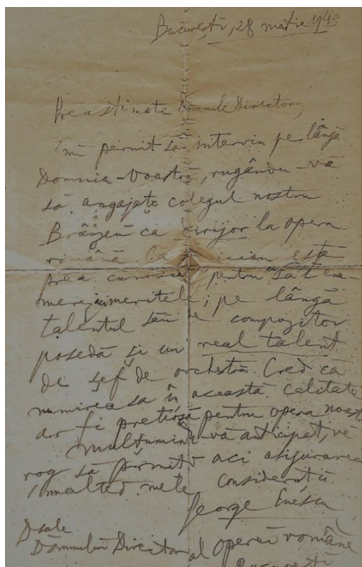 București, 28 martie 1943
Preastimate Domnule Director,
Îmi permit să intervin pe lângă
Domnia-voastră, rugându-vă
să angajați colegul nostru
Brânzeu ca dirijor la opera
română. Ca muzician este
prea cunoscut pentru a să-i enu-
merez meritele; pe lângă
talentul său de compozitor
posedă și un real talent
de șef de orchestră. Cred ca
numirea sa în această calitate
ar fi prețioasă pentru opera noastră
Mulțumindu-vă anticipat, vă
rog să primiți aci asigurarea
înaltei mele considerații
George Enescu
Dsale
Domnului Director al operei române
București